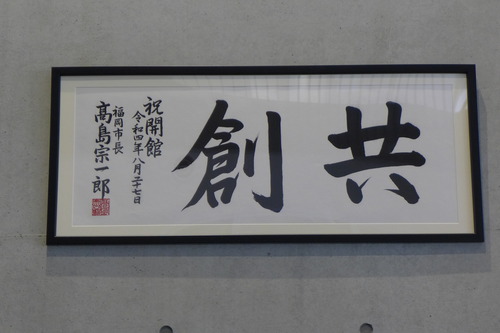 共創
祝開館
令和四年八月二十七日
福岡市長
髙島宗一郎